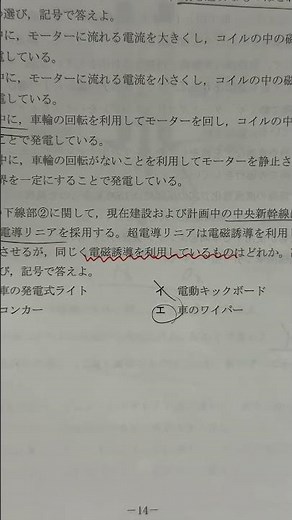 選び，記号で答えよ。
中に，モーターに流れる電流を大きくし，コイルの中の磁
電している。
中に，モーターに流れる電流を小さくし，コイルの中の磁
電している。
中に，車輪の回転を利用してモーターを回し，コイルの中
ことで発電している。
中に，車輪の回転がないことを利用してモーターを静止さ
界を一定にすることで発電している。
下線部②に関して，現在建設および計画中の中央新幹線
電導リニアを採用する。超電導リニアは電磁誘導を利用
させるが，同じく電磁誘導を利用しているものはどれか。
び，記号で答えよ。
車の発電式ライト　イ　電動キックボード
コンカー　エ　車のワイパー
－14－